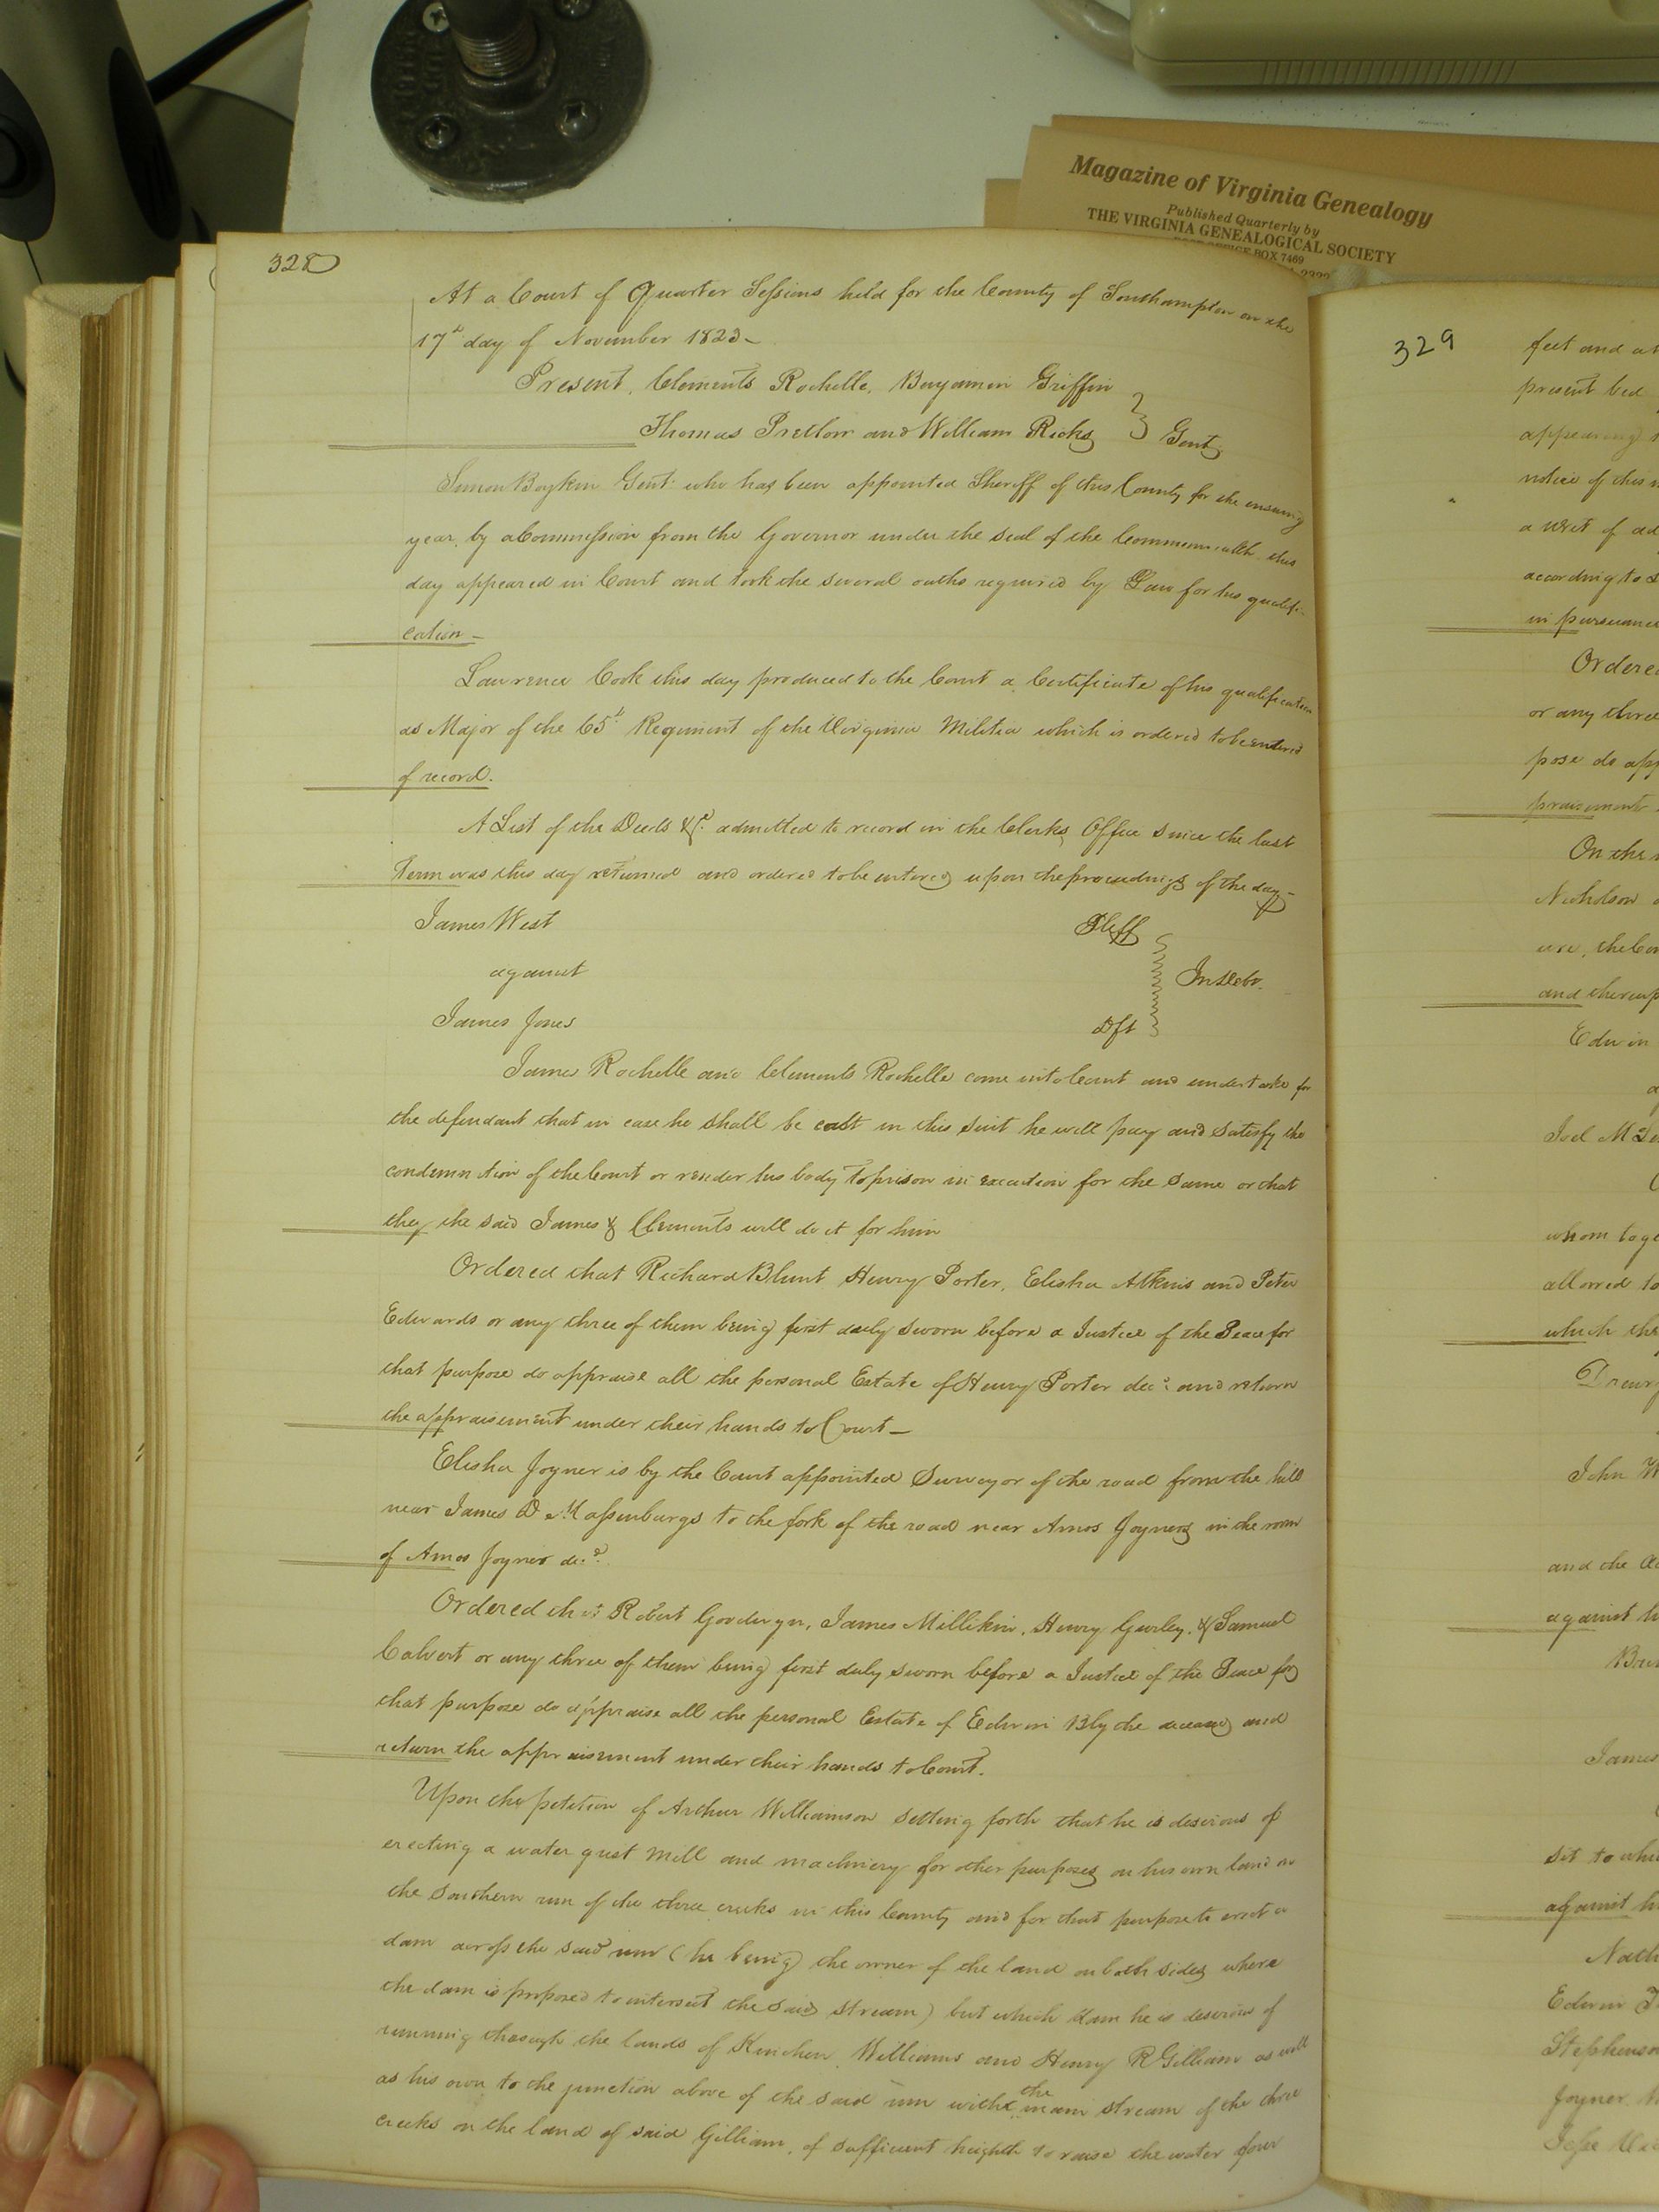 Magazine of Virginia Genealogy
Published Quarterly by
THE VIRGINIA GENEALOGICAL SOCIETY
POST OFFICE BOX 7469
328
At a Court of Quarter Sessions held for the County of Southampton on the
17th day of November 1823-
Present, Clements Rochelle, Benjamin Griffin
Thomas Pretlow and William Ricks } Gent.
Simon Boykin Gent. who has been appointed Sheriff of this County for the ensuing
year, by a Commission from the Governor under the seal of the Commonwealth this
day appeared in Court and took the several oaths required by Law for his qualifi-
cation -
Lawrence Cook this day produced to the Court a Certificate of his qualification
as Major of the 65th Regiment of the Virginia Militia which is ordered to be entered
of record.
A List of the Deeds &c. admitted to record in the Clerks Office since the last
Term was this day returned and ordered to be entered upon the proceedings of the day-
James West Pltff
against In Debt.
James Jones Dft
James Rochelle and Clements Rochelle come into Court and undertake for
the defendant that in case he shall be cast in this suit he will pay and satisfy the
condemnation of the Court or render his body to prison in execution for the same or that
they the said James & Clements will do it for him
Ordered that Richard Blunt Henry Porter, Elisha Atkins and Peter
Edwards or any three of them being first duly sworn before a Justice of the Peace for
that purpose do appraise all the personal Estate of Henry Porter decd. and return
the appraisement under their hands to Court -
Elisha Joyner is by the Court appointed Surveyor of the road from the hill
near James D. Massenburgs to the fork of the road near Amos Joyners in the room
of Amos Joyner decd.
Ordered that Robert Goodwyn, James Millikin, Henry Gurley, & Samuel
Calvert or any three of them being first duly sworn before a Justice of the Peace for
that purpose do appraise all the personal Estate of Edwin Blythe deceased and
return the appraisement under their hands to Court.
Upon the petition of Arthur Williamson setting forth that he is desirous of
erecting a water grist Mill and machinery for other purposes on his own land on
the southern run of the three creeks in this County and for that purpose to erect a
dam across the said run (he being the owner of the land on both sides where
the dam is proposed to intersect the said stream) but which dam he is desirous of
running through the lands of Kinchen Williams and Henry R Gilliam as well
as his own to the junction above of the said run with the main stream of the three
creeks on the land of said Gilliam, of sufficient heighth to raise the water four
329
feet and
present bed
appearing
notice of this
a writ of ad
according to
in pursuance
Ordered
or any three
pose do app
praisement
On the
Nicholson
and thereup
Edwin
whom toge
allowed to
which the
Drewry
John W
and the
against
James
sit to whi
against
Edwin
Stephenson
Joyner